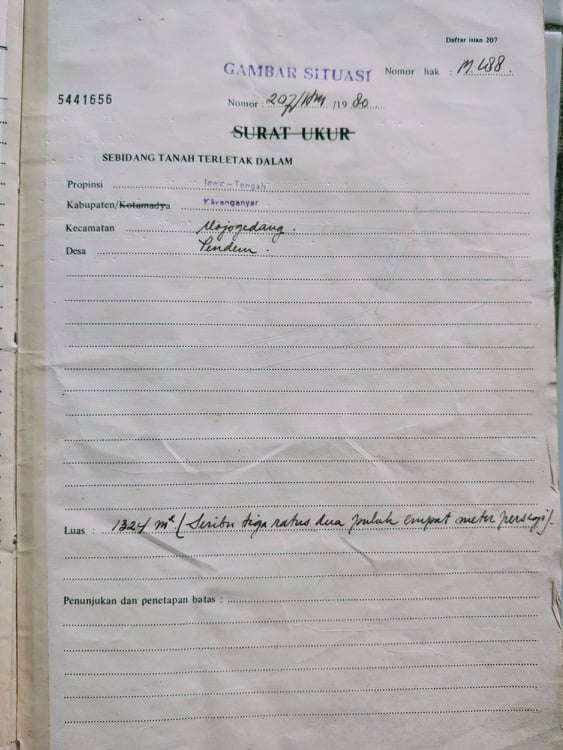 Daftar isian 207
GAMBAR SITUASI Nomor hak : M.488.
5441656
Nomor : 207/KM /19 80
SURAT UKUR
SEBIDANG TANAH TERLETAK DALAM
Propinsi Jawa-Tengah
Kabupaten/Kotamadya Karanganyar
Kecamatan Mojogedang.
Desa Pendem.
Luas : 1324 m² (Seribu tiga ratus dua puluh empat meter persegi).
Penunjukan dan penetapan batas :